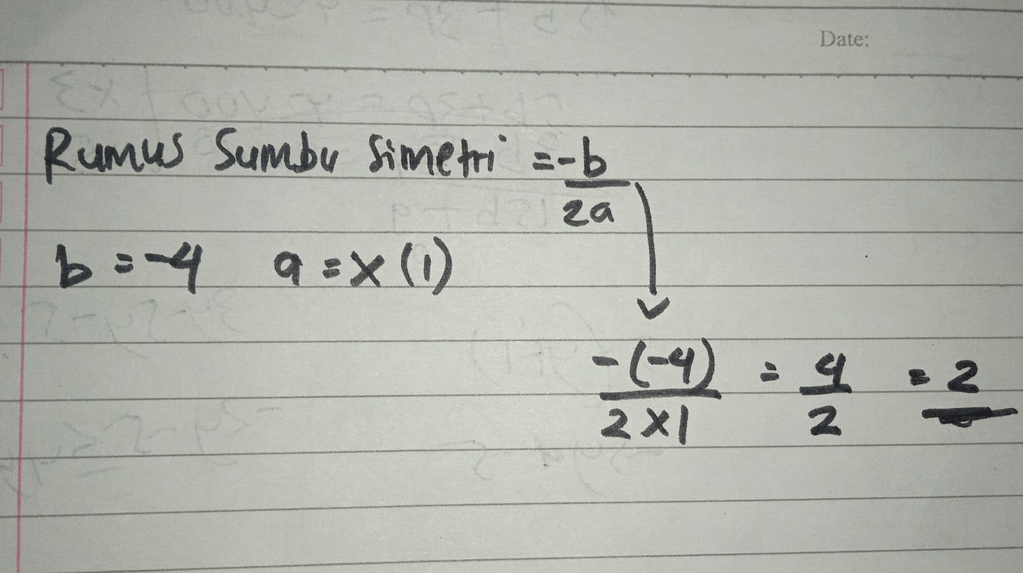 Date:
Rumus Sumbu Simetri = -b/2a
b = -4 a = x (1)
-(-4)/2 x 1 = 4/2 = 2